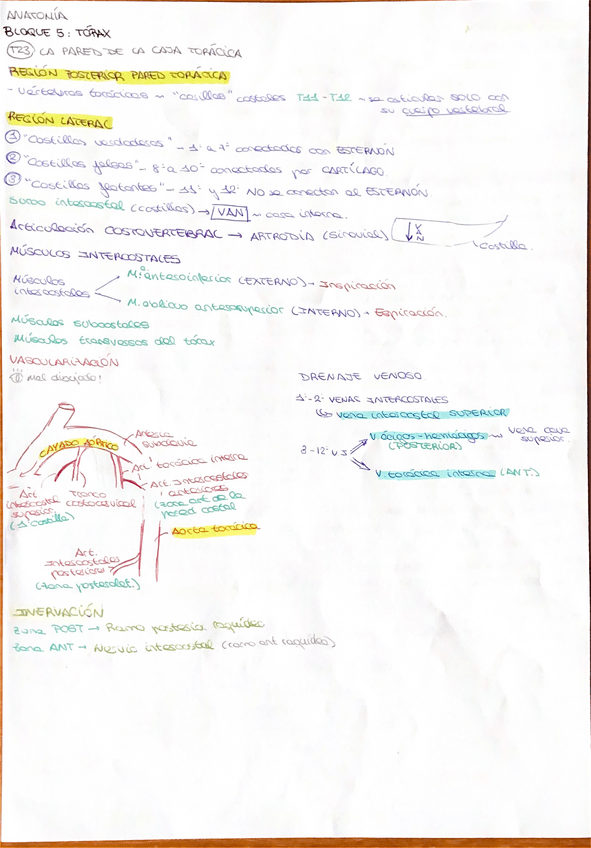 ANATOMÍA
BLOQUE 5: TÓRAX
T23 LA PARED DE LA CAJA TORÁCICA
REGIÓN POSTERIOR PARED TORÁCICA
- Vértebras torácicas ~ "carillas" costales T11-T12 - se articulan SOLO con
su cuerpo vertebral
REGIÓN LATERAL
1 "Costillas verdaderas" - 1ª a 7ª conectadas con ESTERNÓN
2 "Costillas falsas" - 8ª a 10ª conectadas por CARTÍLAGO.
3 "Costillas flotantes" - 11ª y 12ª NO se conectan al ESTERNÓN.
Surco intercostal (costillas) → VAN ~ cara interna.
Articulación COSTOVERTEBRAL → ARTRODIA (sinovial)
VAN
Costilla.
MÚSCULOS INTERCOSTALES
Músculos intercostales
M. anteroinferior (EXTERNO) - Inspiración
M. oblicuo anterosuperior (INTERNO) - Espiración.
Músculos subcostales
Músculos transversos del tórax
VASCULARIZACIÓN
mal dibujado!
CAYADO AÓRTICO
Arteria subclavia
Art. torácica interna
Art. Intercostales anteriores
(zona art de la pared costal
Art intercostal superior
(1ª costilla)
Tronco costocervical
Aorta torácica
Art. Intercostales posteriores
(zona posterolat.)
DRENAJE VENOSO
1ª-2ª VENAS INTERCOSTALES
vena intercostal SUPERIOR
3-12ª VI
V ácigos-hemiácigos ~ vena cava superior.
(POSTERIOR)
V torácica interna (ANT.)
INERVACIÓN
Zona POST → Ramo posterior raquídeo
Zona ANT → Nervio intercostal (ramo ant raquídeo)